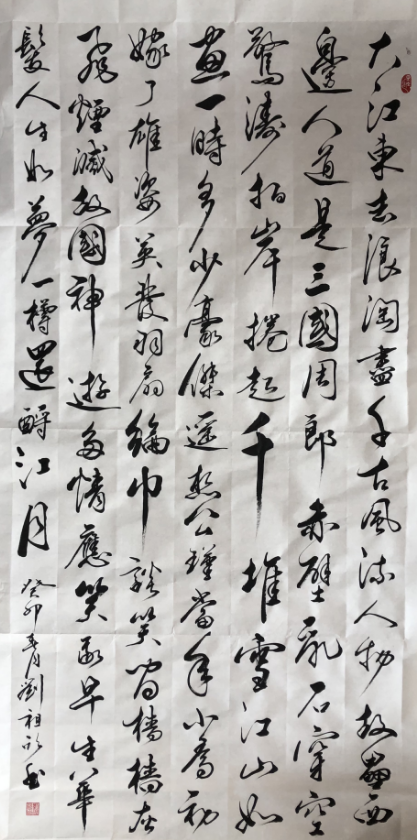 大江東去浪淘盡千古風流人物故壘西
邊人道是三國周郎赤壁亂石穿空
驚濤拍岸捲起千堆雪江山如
畫一時多少豪傑遙想公瑾當年小喬初
嫁了雄姿英發羽扇綸巾談笑間檣櫓灰
飛煙滅故國神遊多情應笑我早生華
髮人生如夢一樽還酹江月
癸卯春月劉祖書